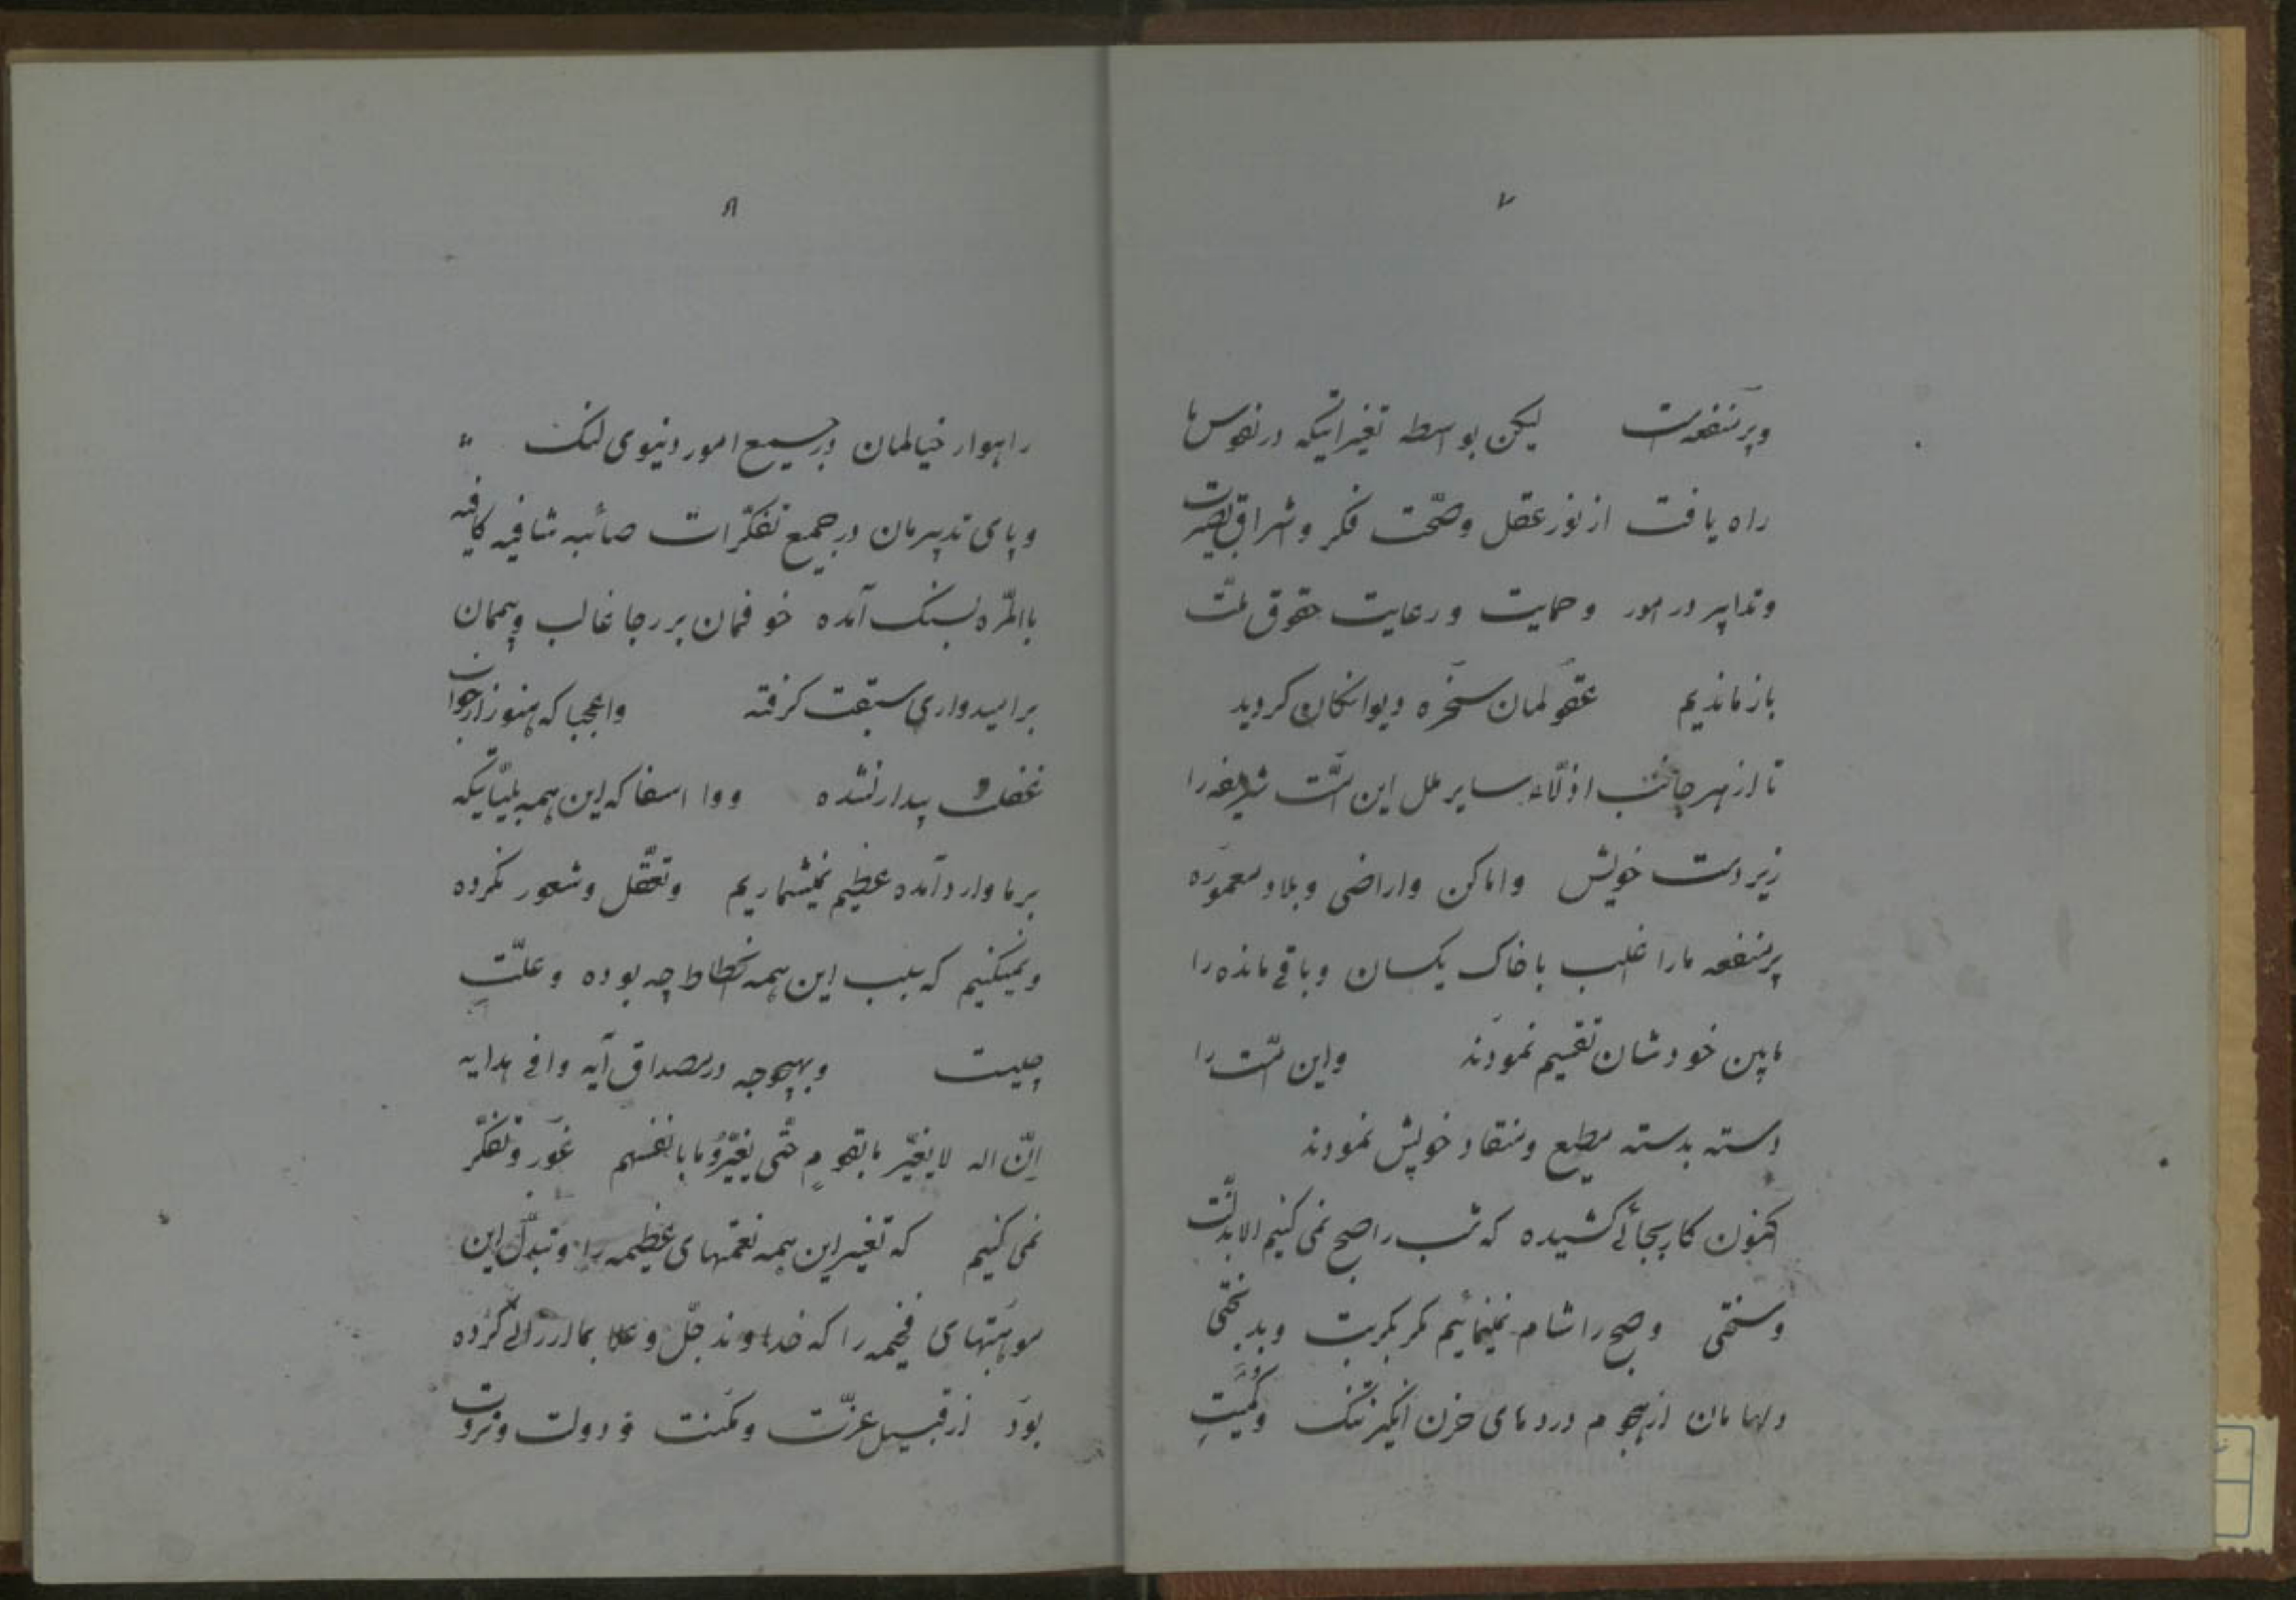 ۷
و پر منفعت لیکن بواسطه تغیراتیکه در نفوس ما
راه یافت از نور عقل و صحّت فکر و اشراق بصیرت
و تدابیر در امور و حمایت و رعایت حقوق ملّت
بازماندیم عقولمان سخره دیوانگان گردید
تا از هر جانب اذلّاء سایر ملل این امّت شریفه را
زیر دست خویش و اماکن و اراضی و بلاد معموره
پرمنفعه ما را اغلب با خاک یکسان و باقی مانده را
مابین خودشان تقسیم نمودند و این امّت را
دسته بدسته مطیع و منقاد خویش نمودند
اکنون کار بجائی کشیده که شب را صبح نمی کنیم الا بذلّت
و سختی و صبح را شام نمینمائیم مگر بکربت و بدبختی
دلهامان از هجوم دردهای حزن انگیز تنگ و کُمَیت
۸
راهوار خیالمان در جمیع امور دنیوی لنگ
و پای تدبیرمان در جمیع تفکّرات صائبه شافیه کافیه
باالمّره بسنگ آمده خوفمان بر رجا غالب و بیممان
بر امیدواری سبقت گرفته واعجبا که هنوز از خواب
غفلت بیدار نشده و وا اسفا که این همه بلیّاتیکه
بر ما وارد آمده عظیم نمیشماریم و تعقّل و شعور نکرده
و نمیکنیم که سبب این همه انحطاط چه بوده و علّت
چیست و بهیچوجه در مصداق آیه وافی هدایه
اِنّ الله لا یغیّر ما بقومٍ حتّی یغیّروُا ما بانفسهم غور و تفکّر
نمی کنیم که تغییر این همه نعمتهای عظیمه را و تبدّل این
موهبتهای فخیمه را که خداوند جلّ و علا بما ارزانی کرده
بود از قبیل عزّت و مکنت و دولت و ثروت